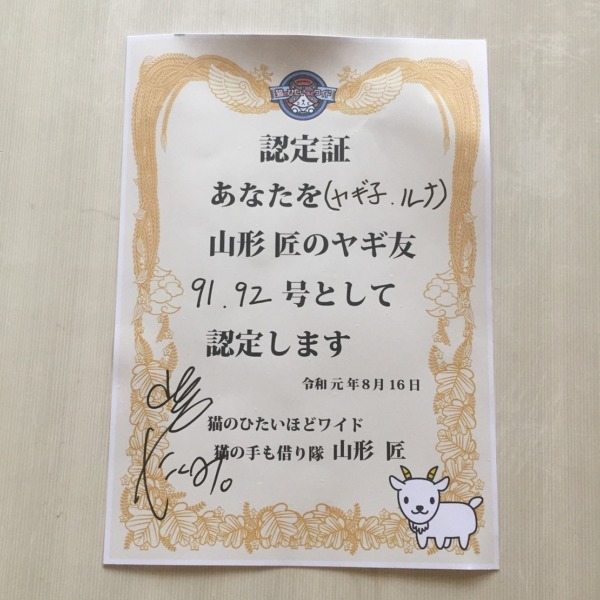 猫のひたいほどワイド
認定証
あなたを(ヤギ子.ルナ)
山形 匠のヤギ友
91.92 号として
認定します
令和 元年8月16日
猫のひたいほどワイド
猫の手も借り隊 山形 匠